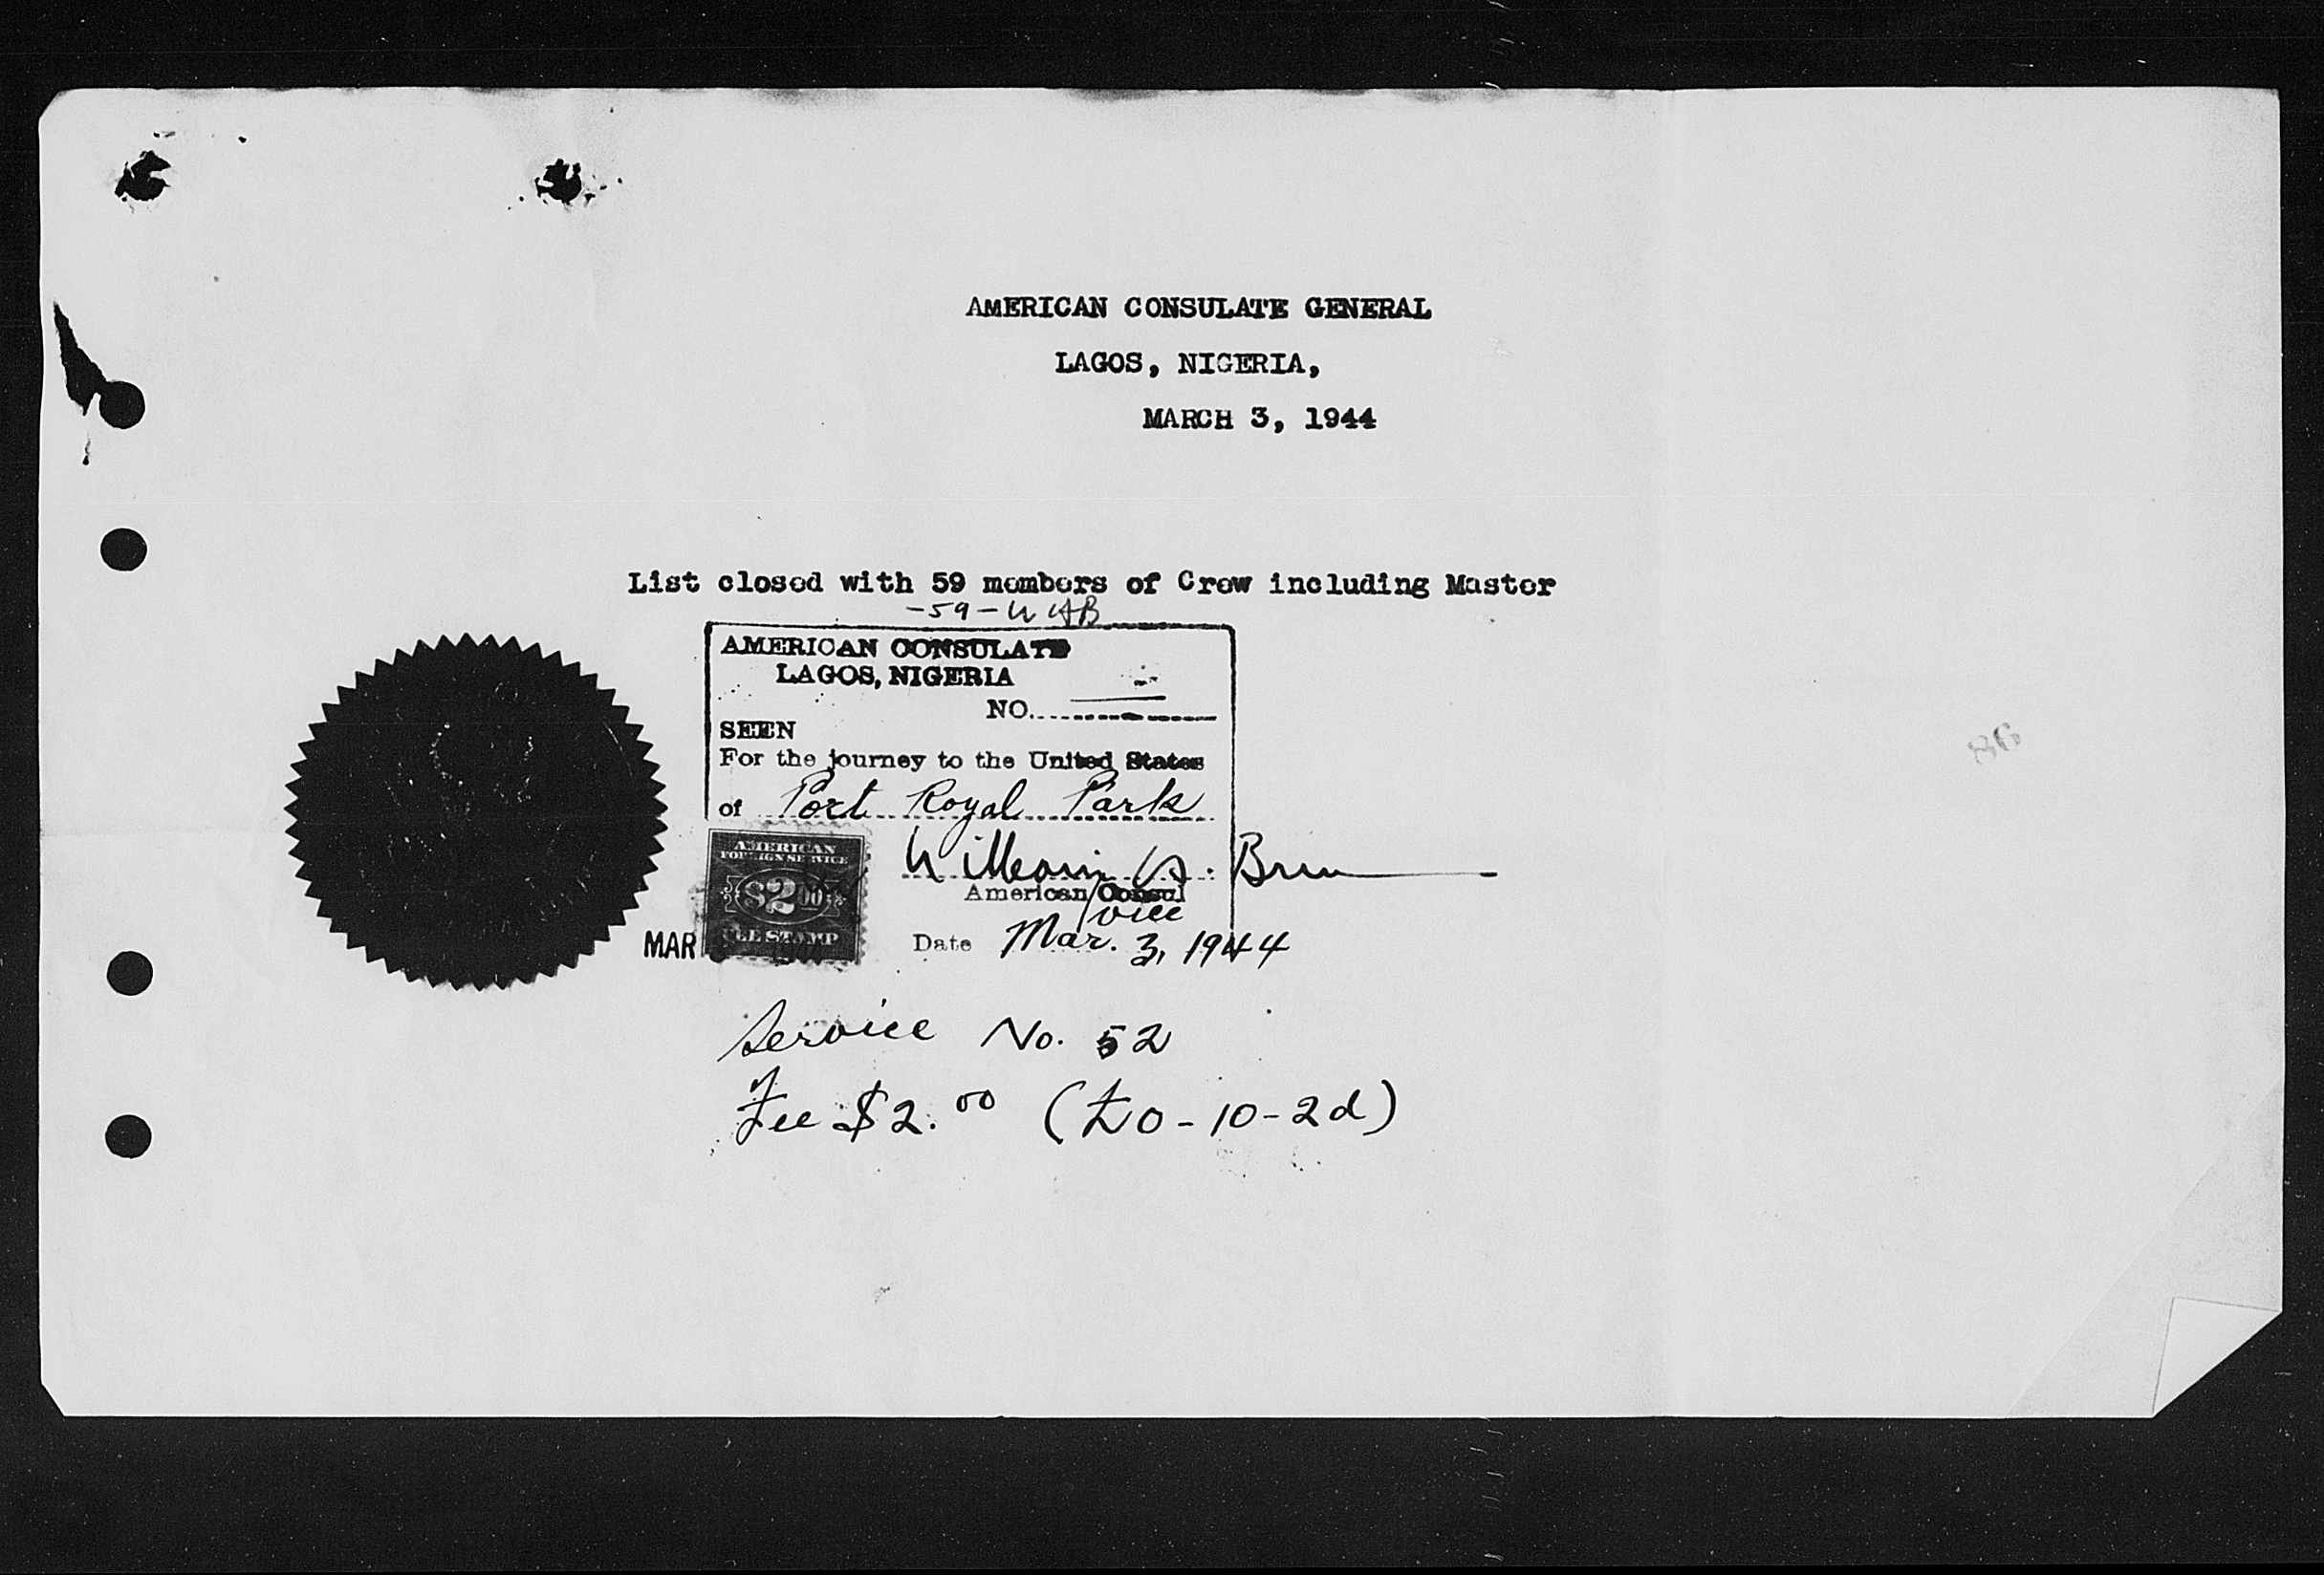 AMERICAN CONSULATE GENERAL
LAGOS, NIGERIA,
MARCH 3, 1944
List closed with 59 members of Crew including Master
-59- WAB
AMERICAN CONSULATE
LAGOS, NIGERIA
NO.
SEEN
For the journey to the United States
of Port Royal Park
AMERICAN
FOREIGN SERVICE
$2.00
FEE STAMP
William A.
American Vice Consul
MAR
Date Mar. 3, 1944
Service No. 52
Fee $2.00 (£0-10-2d)
86